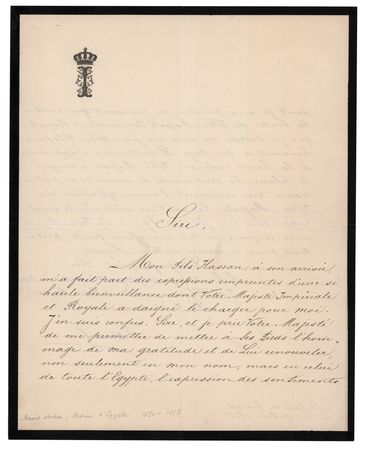 Sire,
Mon fils Hassan, à son arrivée,
m'a fait part des expressions empreintes d'une si
haute bienveillance dont Votre Majesté Impériale
et Royale a daigné le charger pour moi.
J'en suis confus, Sire, et je prie Votre Majesté
de me permettre de mettre à Ses Pieds l'hom-
mage de ma gratitude et de Lui renouveler,
non seulement en mon nom, mais en celui
de toute l'Egypte, l'expression des sentiments
d'Egypte 1830 - 1895